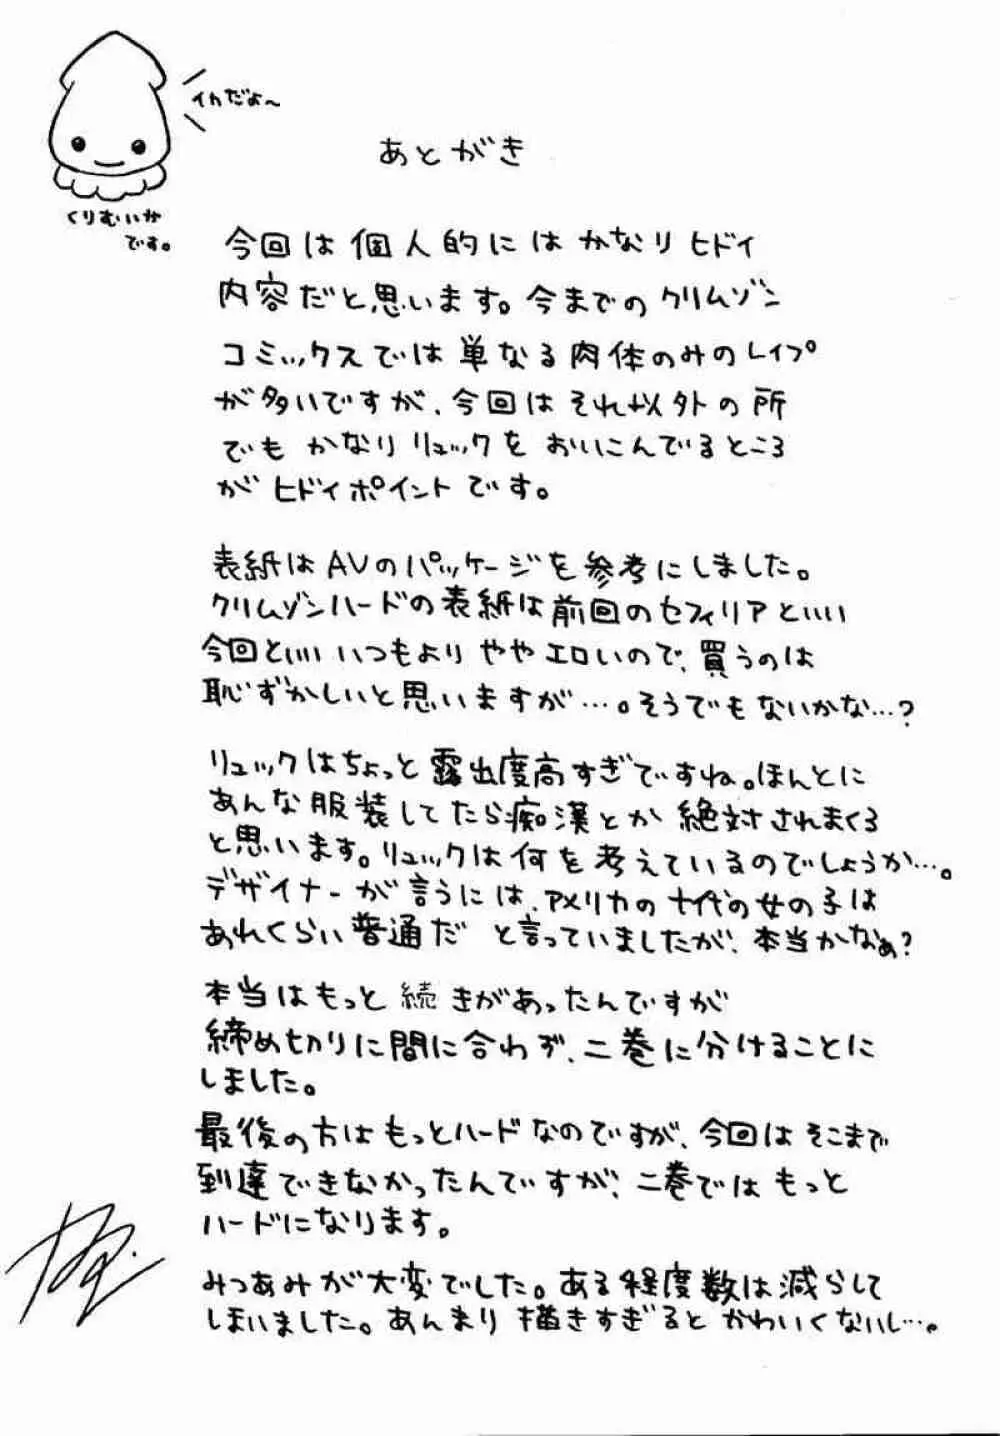 イカだよ～
くりむいか
です。
あとがき
今回は個人的にはかなりヒドイ
内容だと思います。今までのクリムゾン
コミックスでは単なる肉体のみのレイプ
が多いですが、今回はそれ以外の所
でもかなりリュックをおいこんでるところ
がヒドイポイントです。
表紙はAVのパッケージを参考にしました。
クリムゾンハードの表紙は前回のセフィリアといい
今回といいいつもよりややエロいので、買うのは
恥ずかしいと思いますが…。そうでもないかな…？
リュックはちょっと露出度高すぎですね。ほんとに
あんな服装してたら痴漢とか絶対されまくる
と思います。リュックは何を考えているのでしょうか…。
デザイナーが言うには、アメリカの十代の女の子は
あれくらい普通だと言っていましたが、本当かなぁ？
本当はもっと続きがあったんですが
締め切りに間に合わず、二巻に分けることに
しました。
最後の方はもっとハードなのですが、今回はそこまで
到達できなかったんですが、二巻ではもっと
ハードになります。
みつあみが大変でした。ある程度数は減らして
しまいました。あんまり描きすぎるとかわいくないし…。